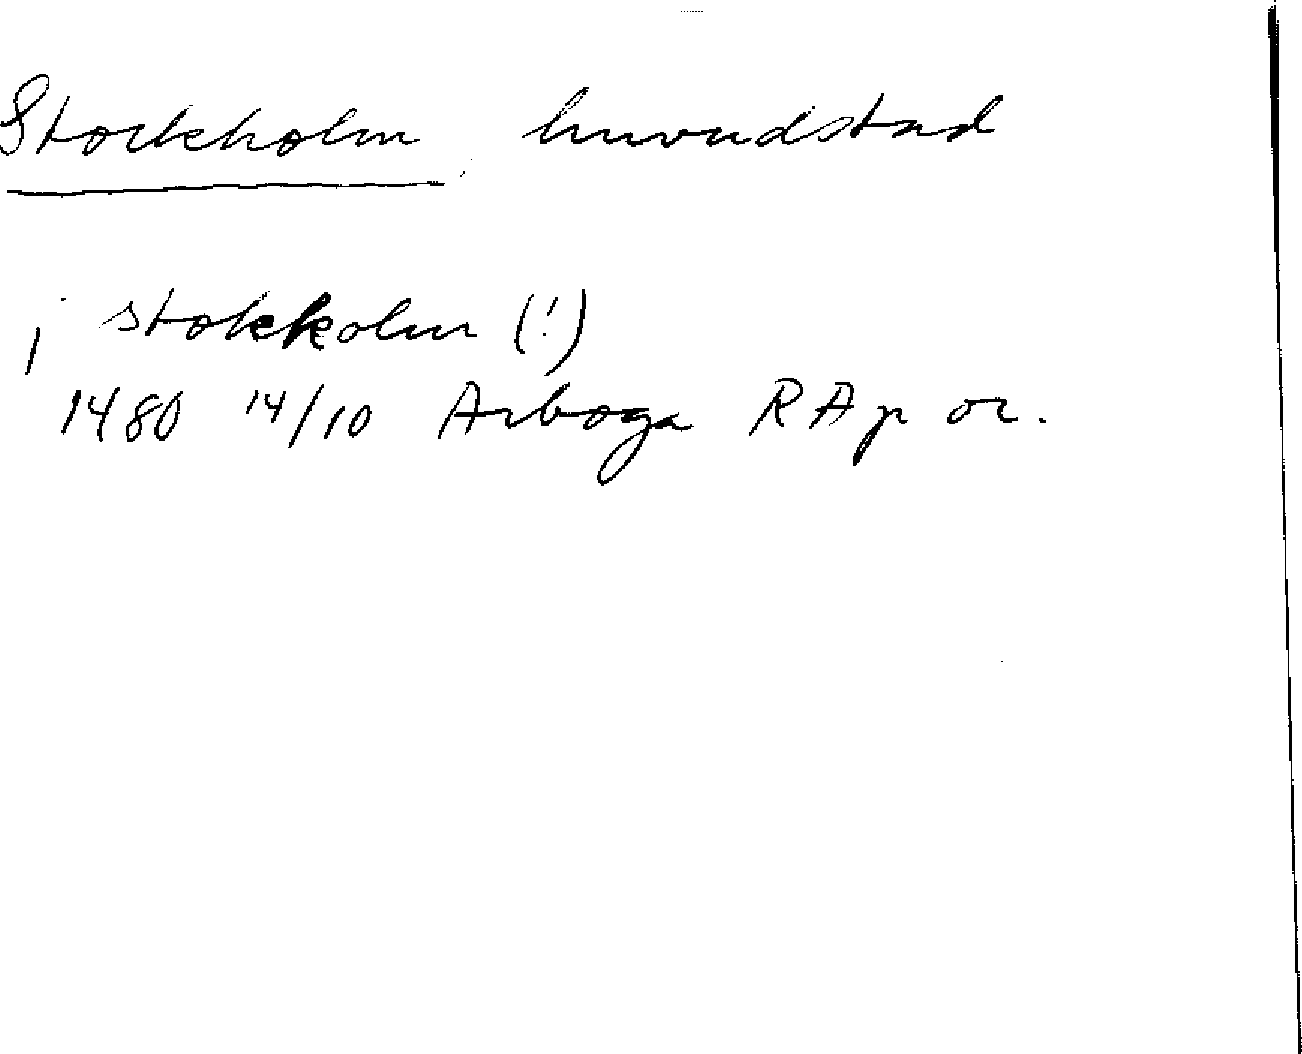 Stockholm, huvudstad
j stokkolm (!)
1480 14/10 Arboga RAp or.